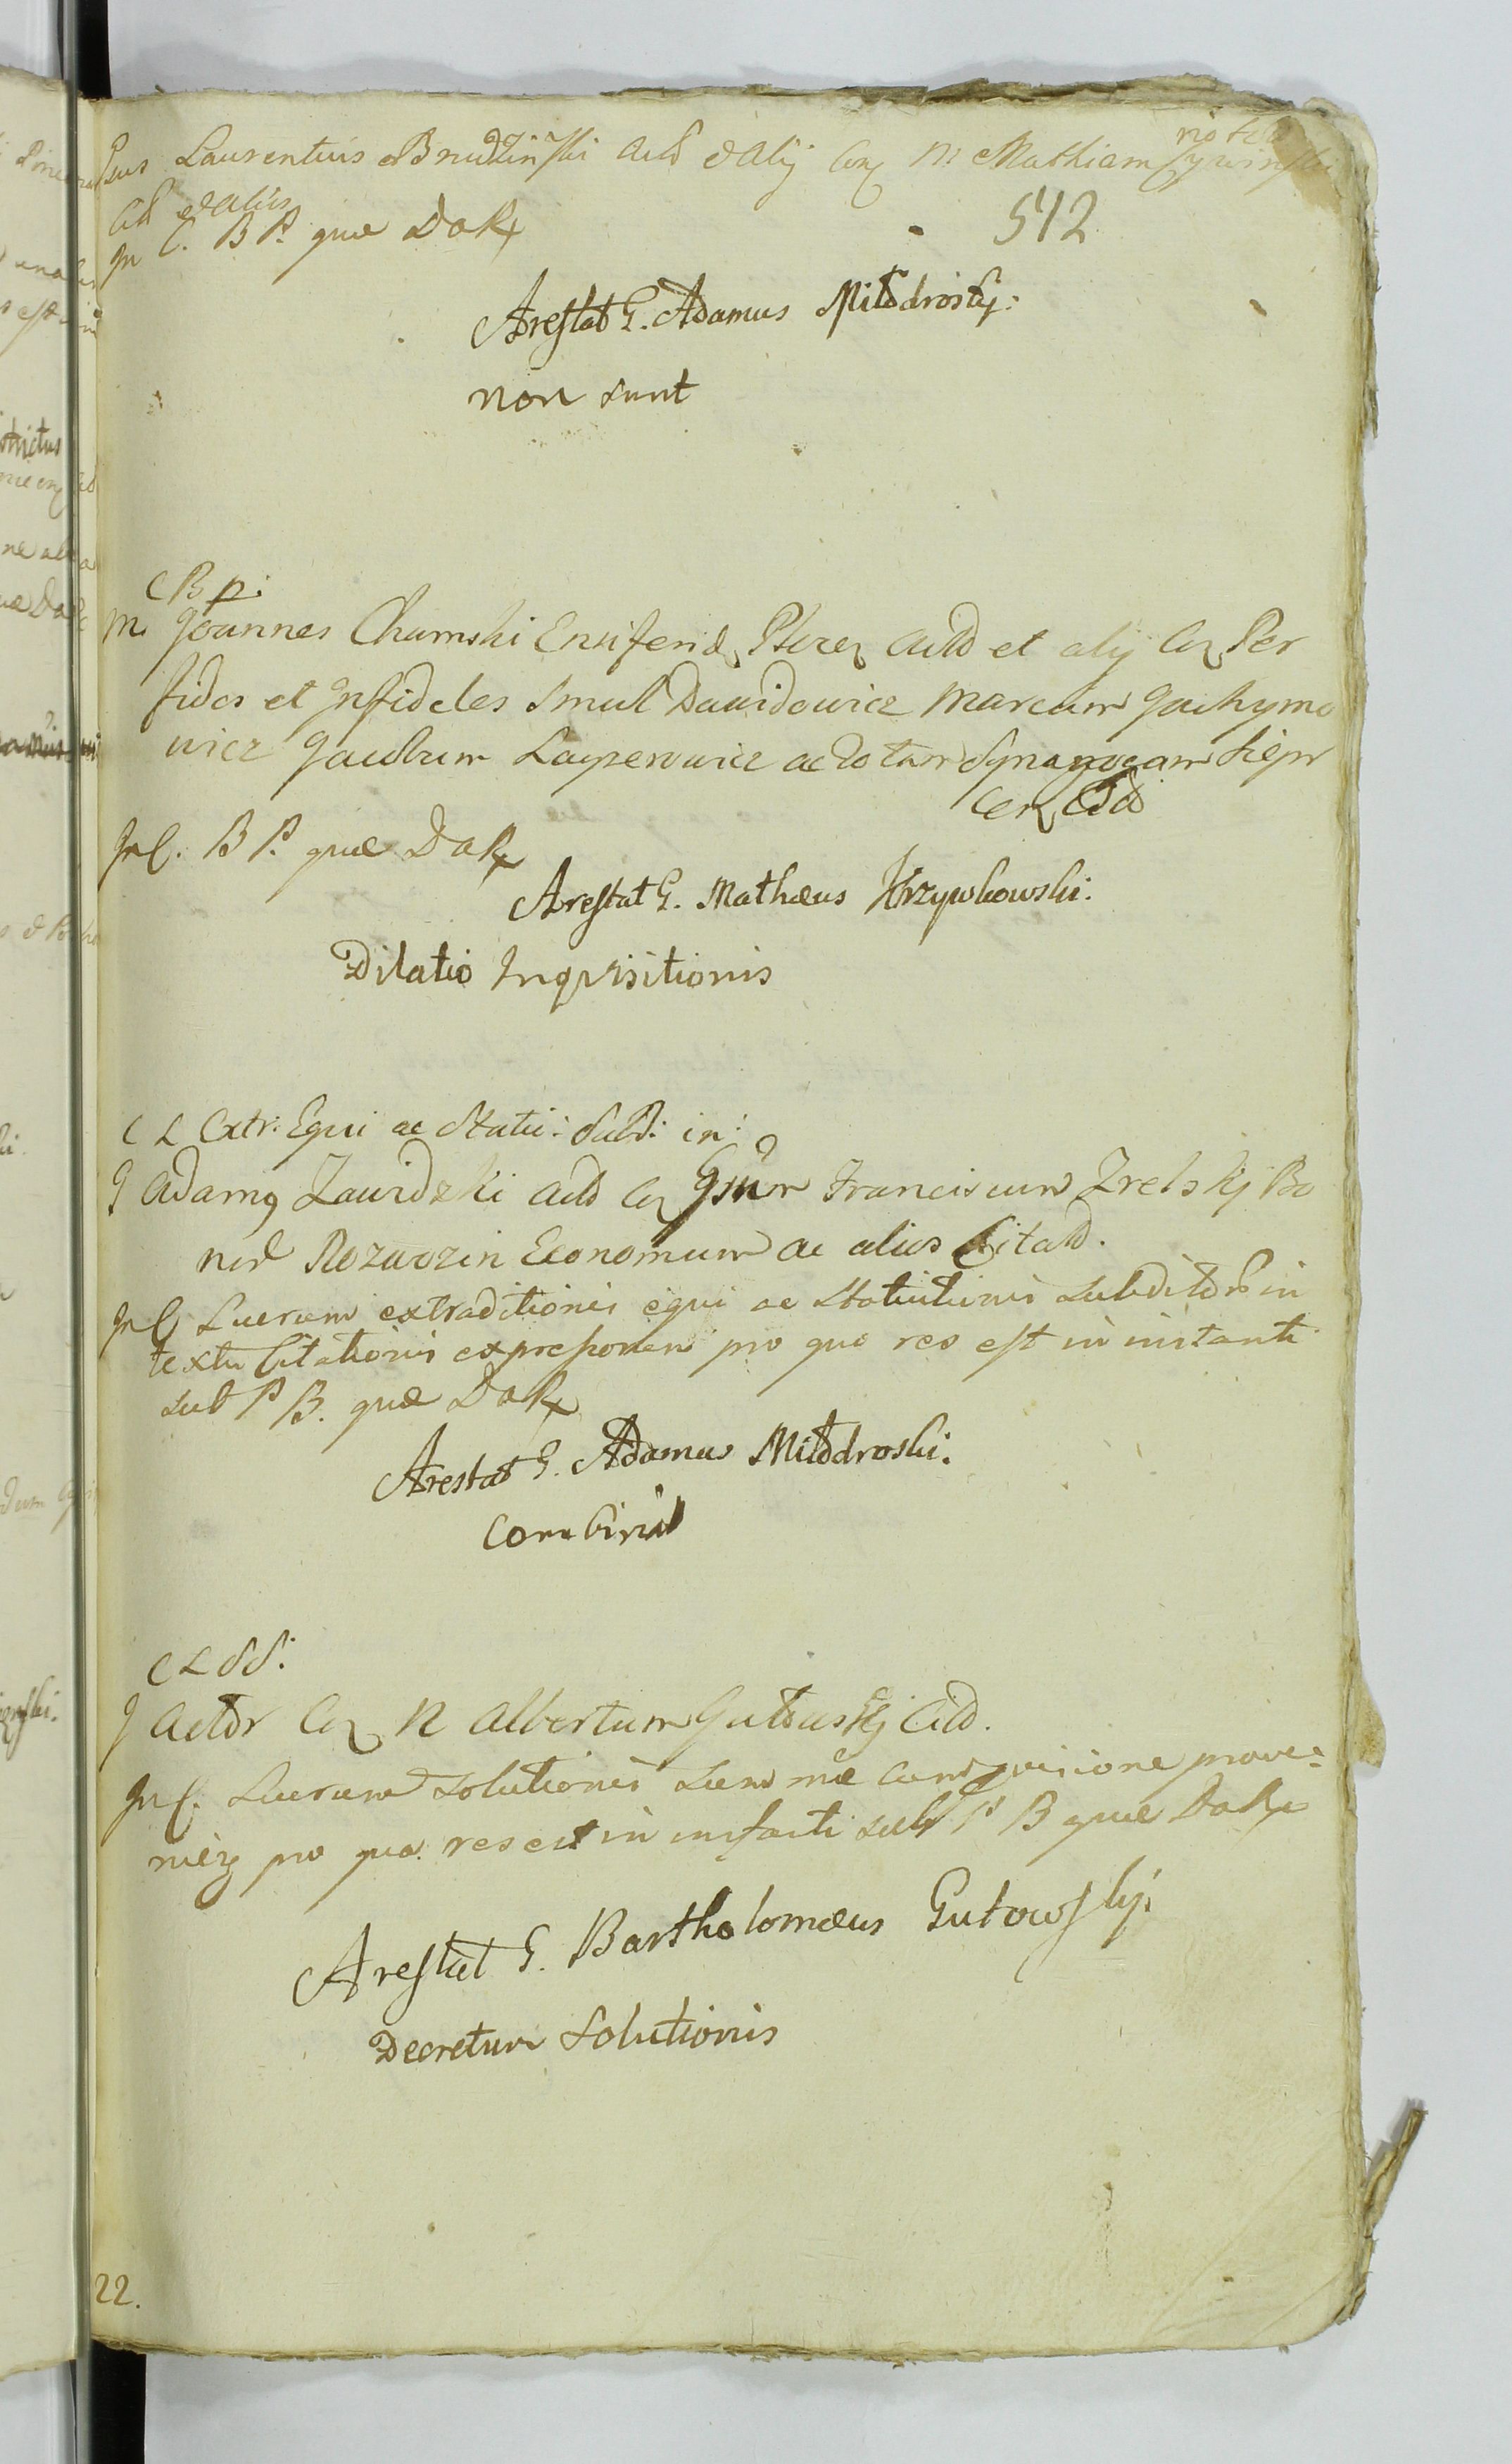 Laurentius Brudzinski Actt et Alij Cong M. Mathiam
Citt et alios
In C. B P. quæ DoRx
512
Arestat G. Adamus Miłodrosky:
non sunt
C B p:
M. Joannes Chamski Ensifer Actt et alij Con Per
fidos et Infideles Smul Dawidowicz Marcum Jachymo
wicz Jacobum Layzerowicz ac totam Synagogam Siepr
cen Citt
In C. B P. quæ DoRx
Arestat G. Mathæus Krzywkowski.
Dilatio Inqvisitionis
C L Extr: Equi ac Statu: Subd: in:
G Adamg Zawidzki Actt Con Gsum Franciscum Zrelskj Bo
nor Rozwozin Economum ac alios Citatt.
In C Lucrum extraditionis equi ac Statuitionis subditor in
textu Citationis expressorum pro quo res est in instanti
sub P B. quæ DoRx
Arestat G. Adamus Miłodroski.
C L SS:
G Actor Con N Albertum Gutowskj Citt.
In C. Lucrum solutionis summæ cum provisione prove:
nien pro qua res est in instanti sub P B quæ DoRx
Arestat G. Bartholomæus Gutowskj.
Decretum Solutionis
22.